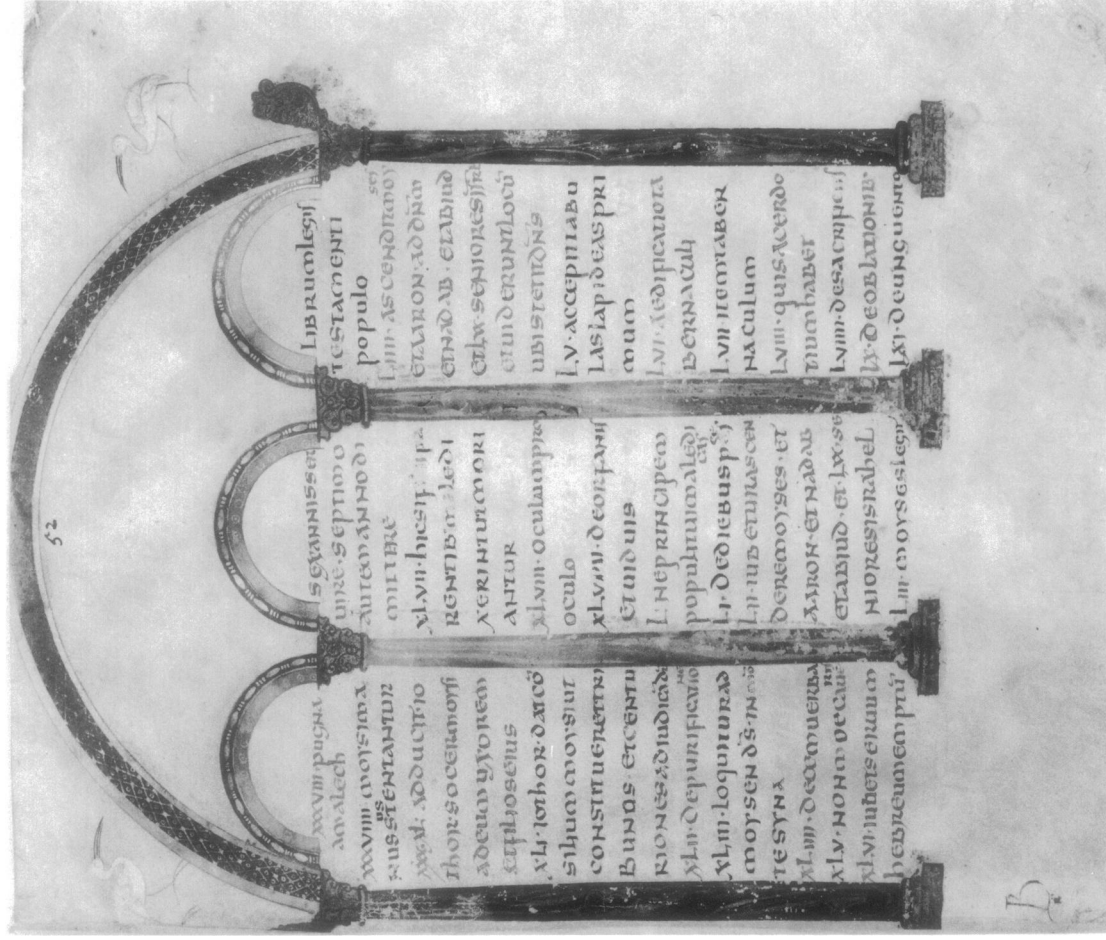 XXXVIII·PUGNA
AMALECH
XXXVIIII·MOYSI MA
NUS SUSTENTANTUR
XXXX·ADDUCIT·IO
THOR·SOCER MOYSI
AD EUM UXOREM
ET FILIOS EIUS
XLI·IOTHOR·DAT CŌ
SILIUM MOYSI UT
CONSTITUERET TRI
BUNOS·ET CENTU
RIONES AD IUDICĀD
XLII·DE PURIFICATIONE
XLIII·LOQUITUR AD
MOYSEN D̄S·IN MŌ
TE SYNA
XLIIII·DECAM UERBA
XLV·NON UOCAUERIS
XLVI·IUBET SERUUM
HEBREUM EMPTŪ
SEX ANNIS SER
UIRE·SEPTIMO
AUTEM ANNO DI
MITTERE
XLVII·HI PA
RENTIB· MALEDI
XERINT UT MORI
ANTUR
XLVIII·OCULUM PRO
OCULO
XLVIIII·DE ORFANIS
ET UIDUIS
L·NE PRINCIPEM
POPULI TUI MALEDICAS
LI·DE DIEBUS
LII·IUBETUR ASCEN
DERE MOYSES·ET
AARON·ET NADAB
ET ABIUD·ET LXX·SE
NIORES ISRAHEL
LIII·MOYSES LEGIT
LIBRUM LEGIS
TESTAMENTI
POPULO
LIIII·ASCENDIT MOYSES
ET AARON·AD D̄NM
ET NADAB·ET ABIUD
ET LXX·SENIORES ISR̄L
ET UIDERUNT LOCŪ
UBI STETIT D̄NS
LV·ACCEPIT TABU
LAS LAPIDEAS PRI
MUM
LVI·AEDIFICATIO TA
BERNACULI
LVII·ITEM TABER
NACULUM
LVIII·QUI SACERDO
TIUM HABET
LVIIII·DE SACRIFICIIS
LX·DE OBLATIONIB·
LXI·DE UNGUENTO
52